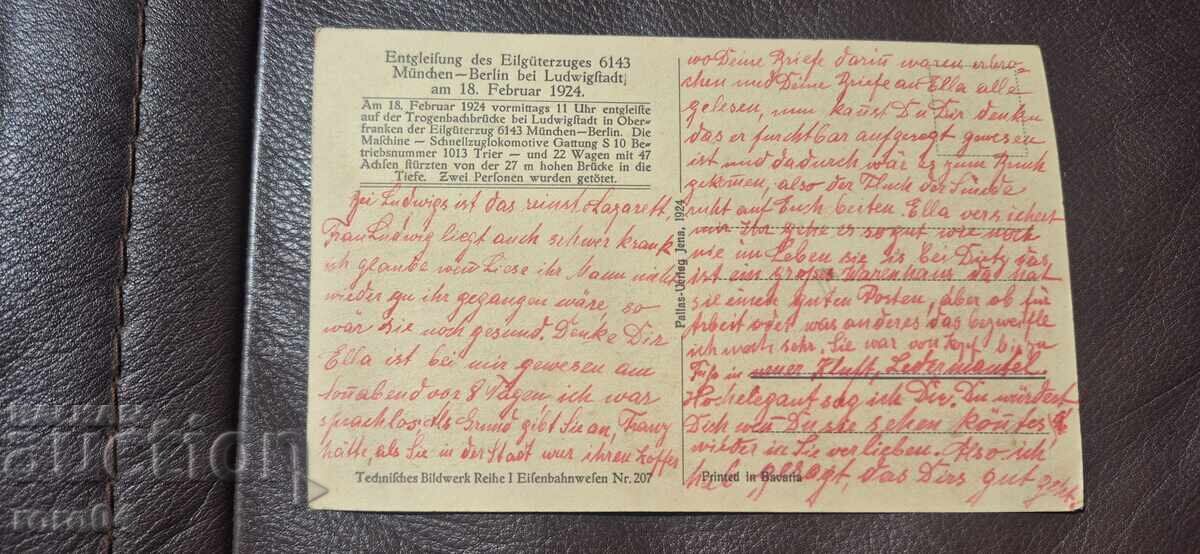 Entgleisung des Eilgüterzuges 6143
München—Berlin bei Ludwigstadt
am 18. Februar 1924.
Am 18. Februar 1924 vormittags 11 Uhr entgleiste
auf der Trogenbachbrücke bei Ludwigstadt in Ober-
franken der Eilgüterzug 6143 München—Berlin. Die
Maschine — Schnellzuglokomotive Gattung S 10 Be-
triebsnummer 1013 Trier — und 22 Wagen mit 47
Achsen stürzten von der 27 m hohen Brücke in die
Tiefe. Zwei Personen wurden getötet.
zu Ludwigs ist das reinste Lazarett,
Frau Ludwig liegt auch schwer krank
ich glaube wen Liese ihr Mann nicht
wieder zu ihr gegangen wäre, so
wär sie noch gesund. Denke Dir
Ella ist bei mir gewesen am
Sonnabend vor 8 Tagen ich war
sprachlos. Als Grund gibt Sie an, Franz
hätte, als Sie in der Stadt war ihren Koffer
Technisches Bildwerk Reihe I Eisenbahnwesen Nr. 207
Pallas-Verlag Jena, 1924
wo Deine Briefe darin waren erbro-
chen und Deine Briefe an Ella alle
gelesen, nun kanst Du Dir denken
das er furchtbar aufgeregt gewesen
ist und dadurch wär es zum Bruch
gekomen, also der Fluch der Sünde
ruht auf Euch beiden. Ella versichert
mir Ihr gehe es so gut wie noch
nie im Leben sie is bei Dietz das
ist ein großes Warenhaus da hat
sie einen guten Posten, aber ob für
Arbeit oder was anderes, das bezweifle
ich noch sehr. Sie war von Kopf bis zu
Fuß in neuer Kluft, Ledermantel.
Hochelegant sag ich Dir. Du würdest
Dich wen Du sie sehen köntest
wieder in Sie verlieben. Also ich
hab gesagt, das Dirs gut geht.
Printed in Bavaria